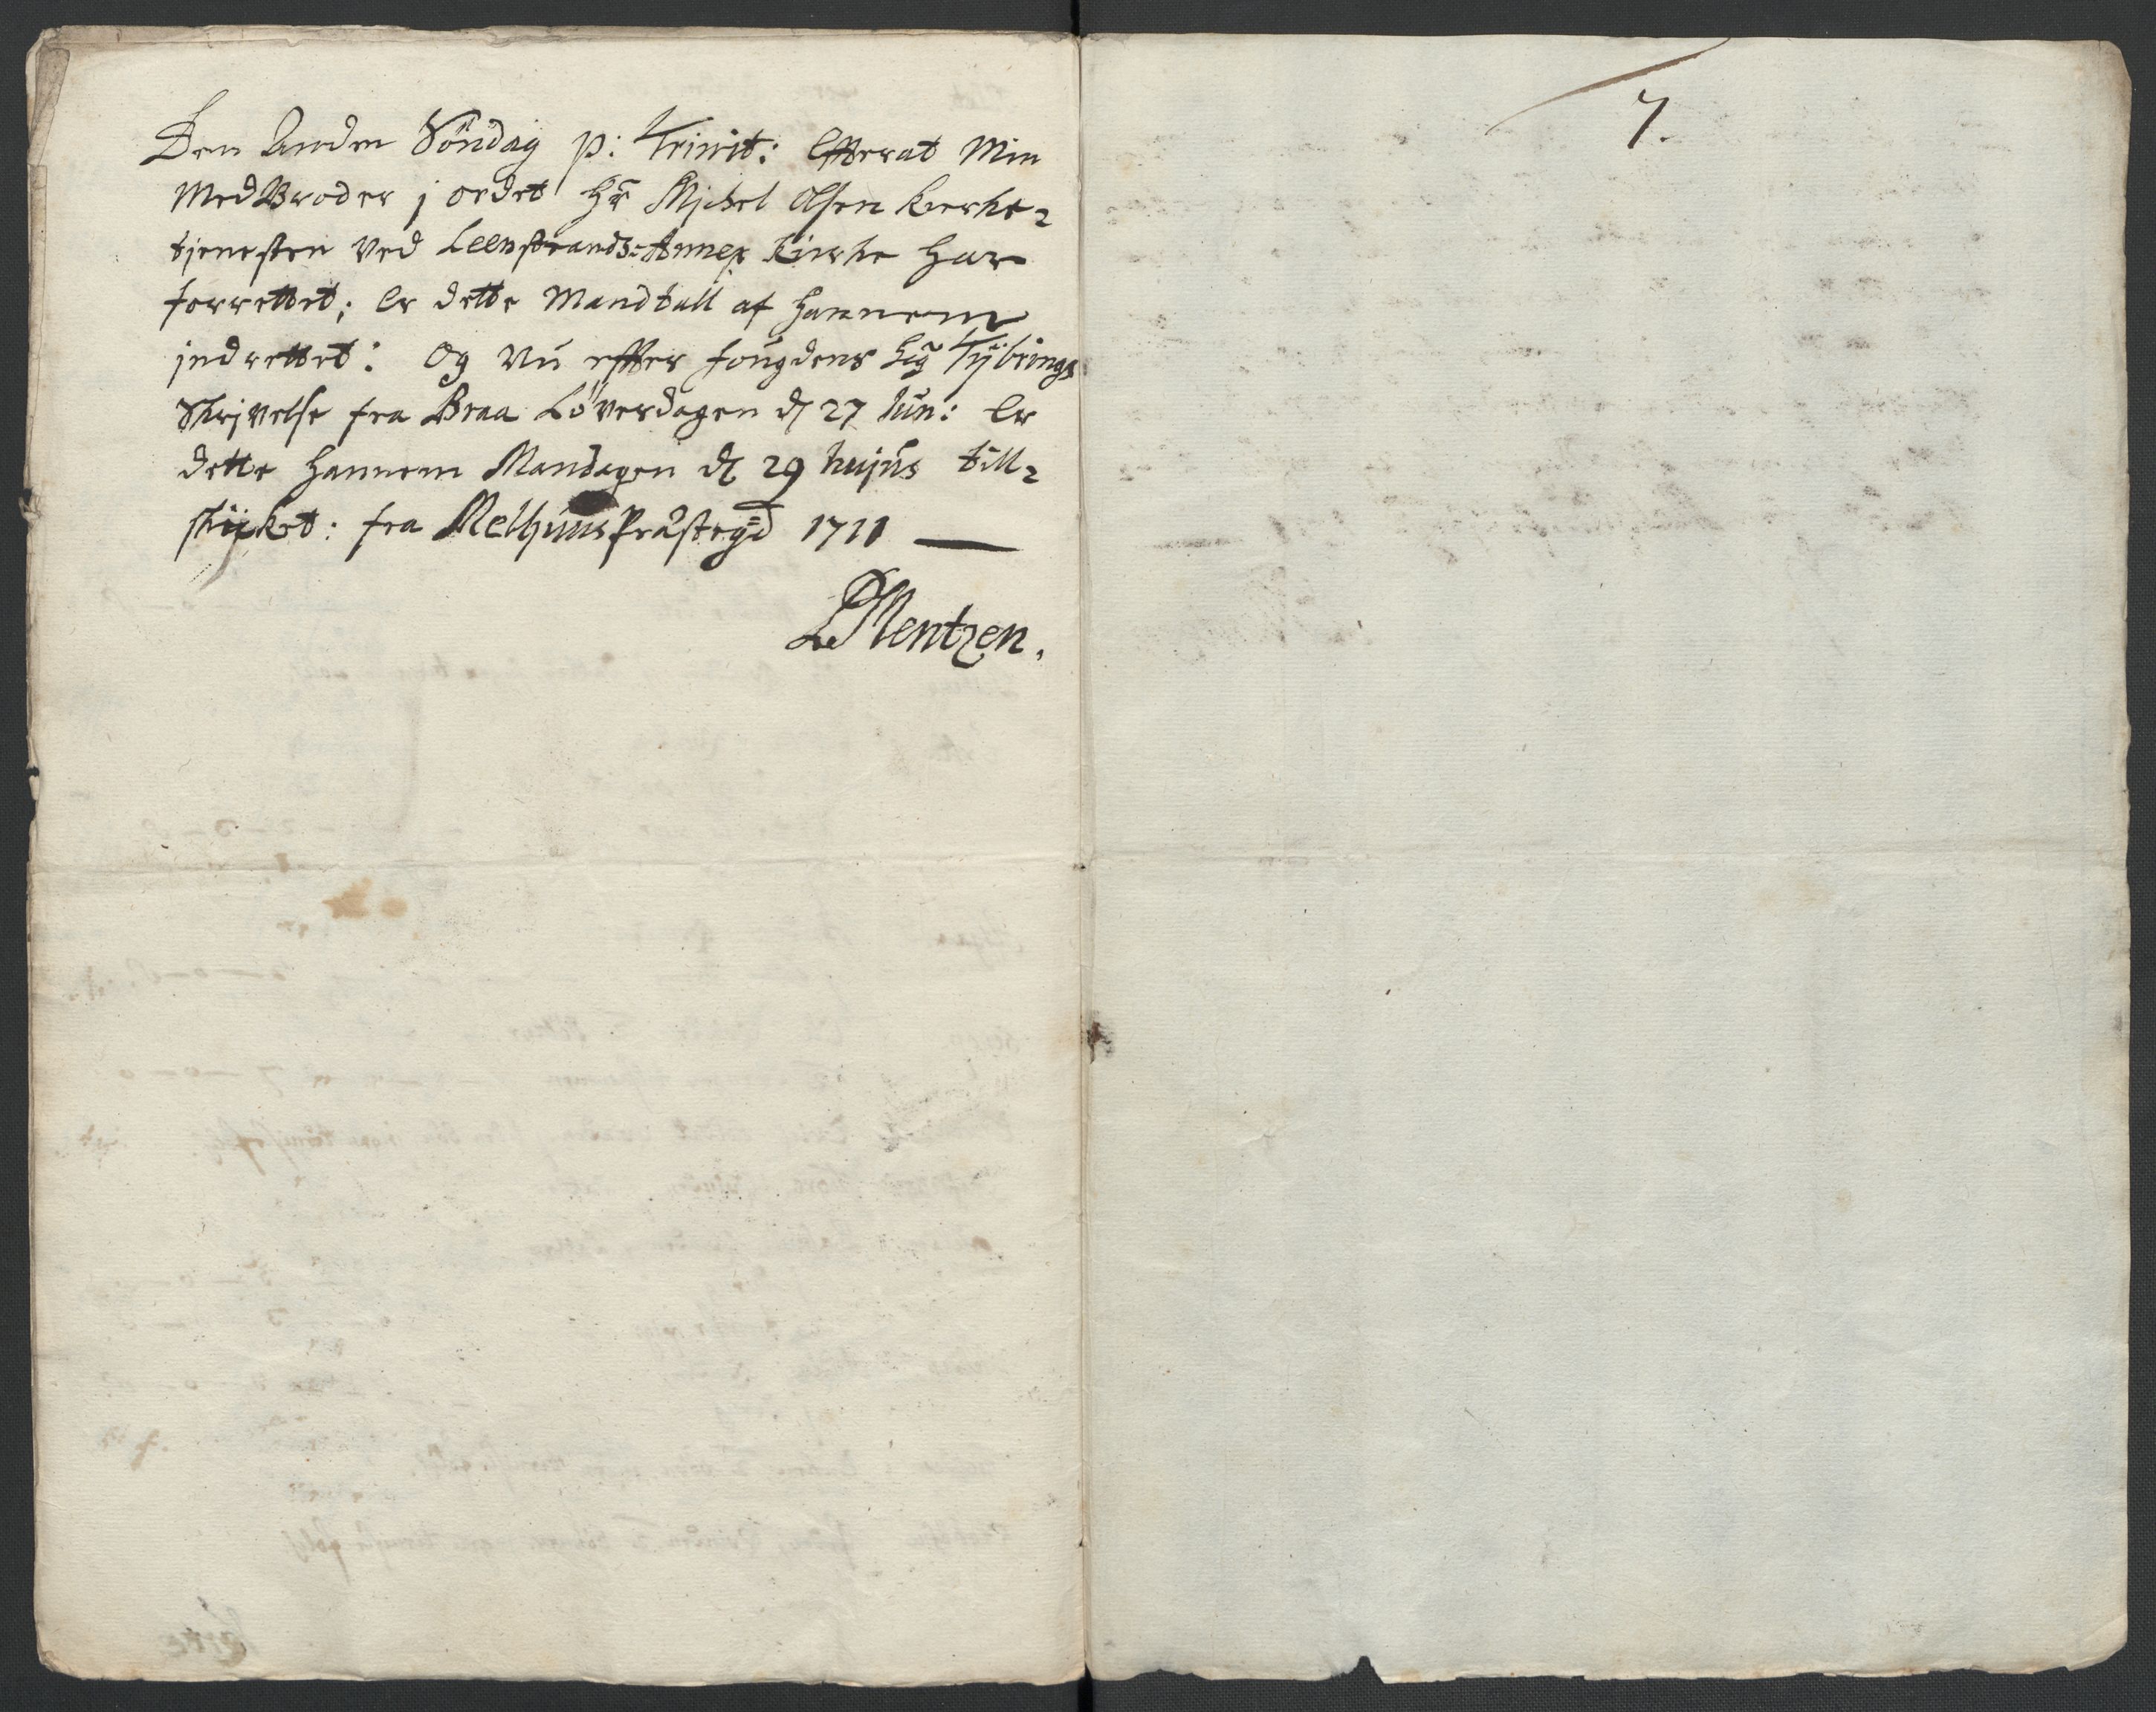 Den Anden Söndag p: Trinit: Efterat Min
MedBroder j ordet Hr Mjchel Olsen kierke-
tjenesten ved Leenstrands-Annex Kirke haver
forrettet; Er dette Mandtall af hannem
jndrettet: Og nu efter fougdens Sig Tÿbrings
Skrjvelse fra Braa Löverdagen d 27 Jun: Er
dette hannem Mandagen d 29 hujus till-
skicket: fra Melhuus Præstegd 1711
L Mentzen.
7.